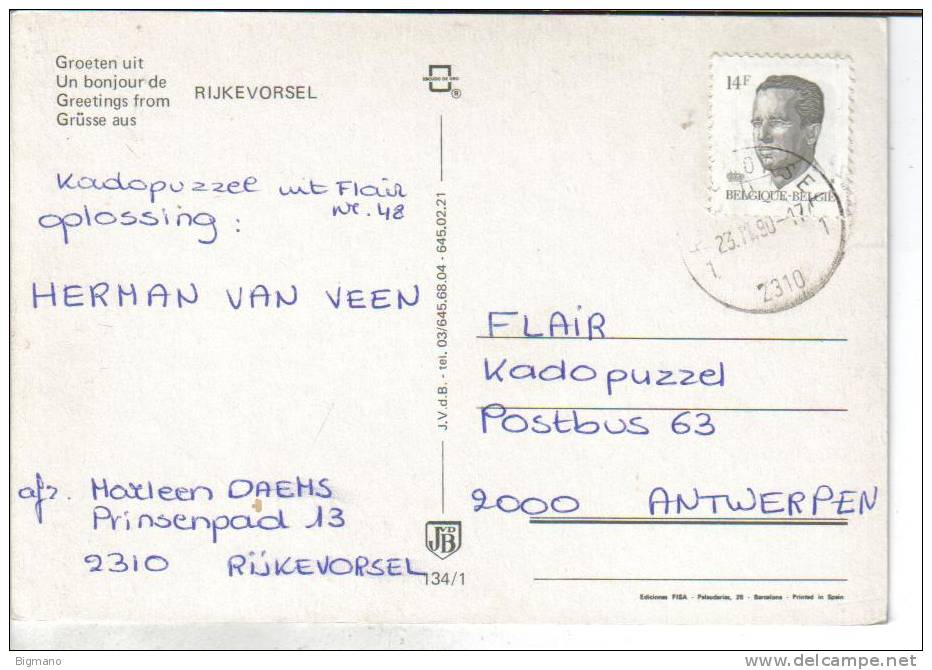 Groeten uit
Un bonjour de
Greetings from
Grüsse aus
RIJKEVORSEL
ESCUDO DE ORO
®
Kadopuzzel uit Flair
Nr. 48
oplossing :
HERMAN VAN VEEN
afz. Marleen DAEMS
Prinsenpad 13
2310 RIJKEVORSEL
J.V.d.B. - tel. 03/645.68.04 - 645.02.21
JVDB
134/1
14F
BELGIQUE-BELGIË
23.11.90-17
1 1
2310
FLAIR
Kadopuzzel
Postbus 63
2000 ANTWERPEN
Ediciones FISA - Palaudarias, 26 - Barcelona - Printed in Spain
Bigmano
delcampe.net